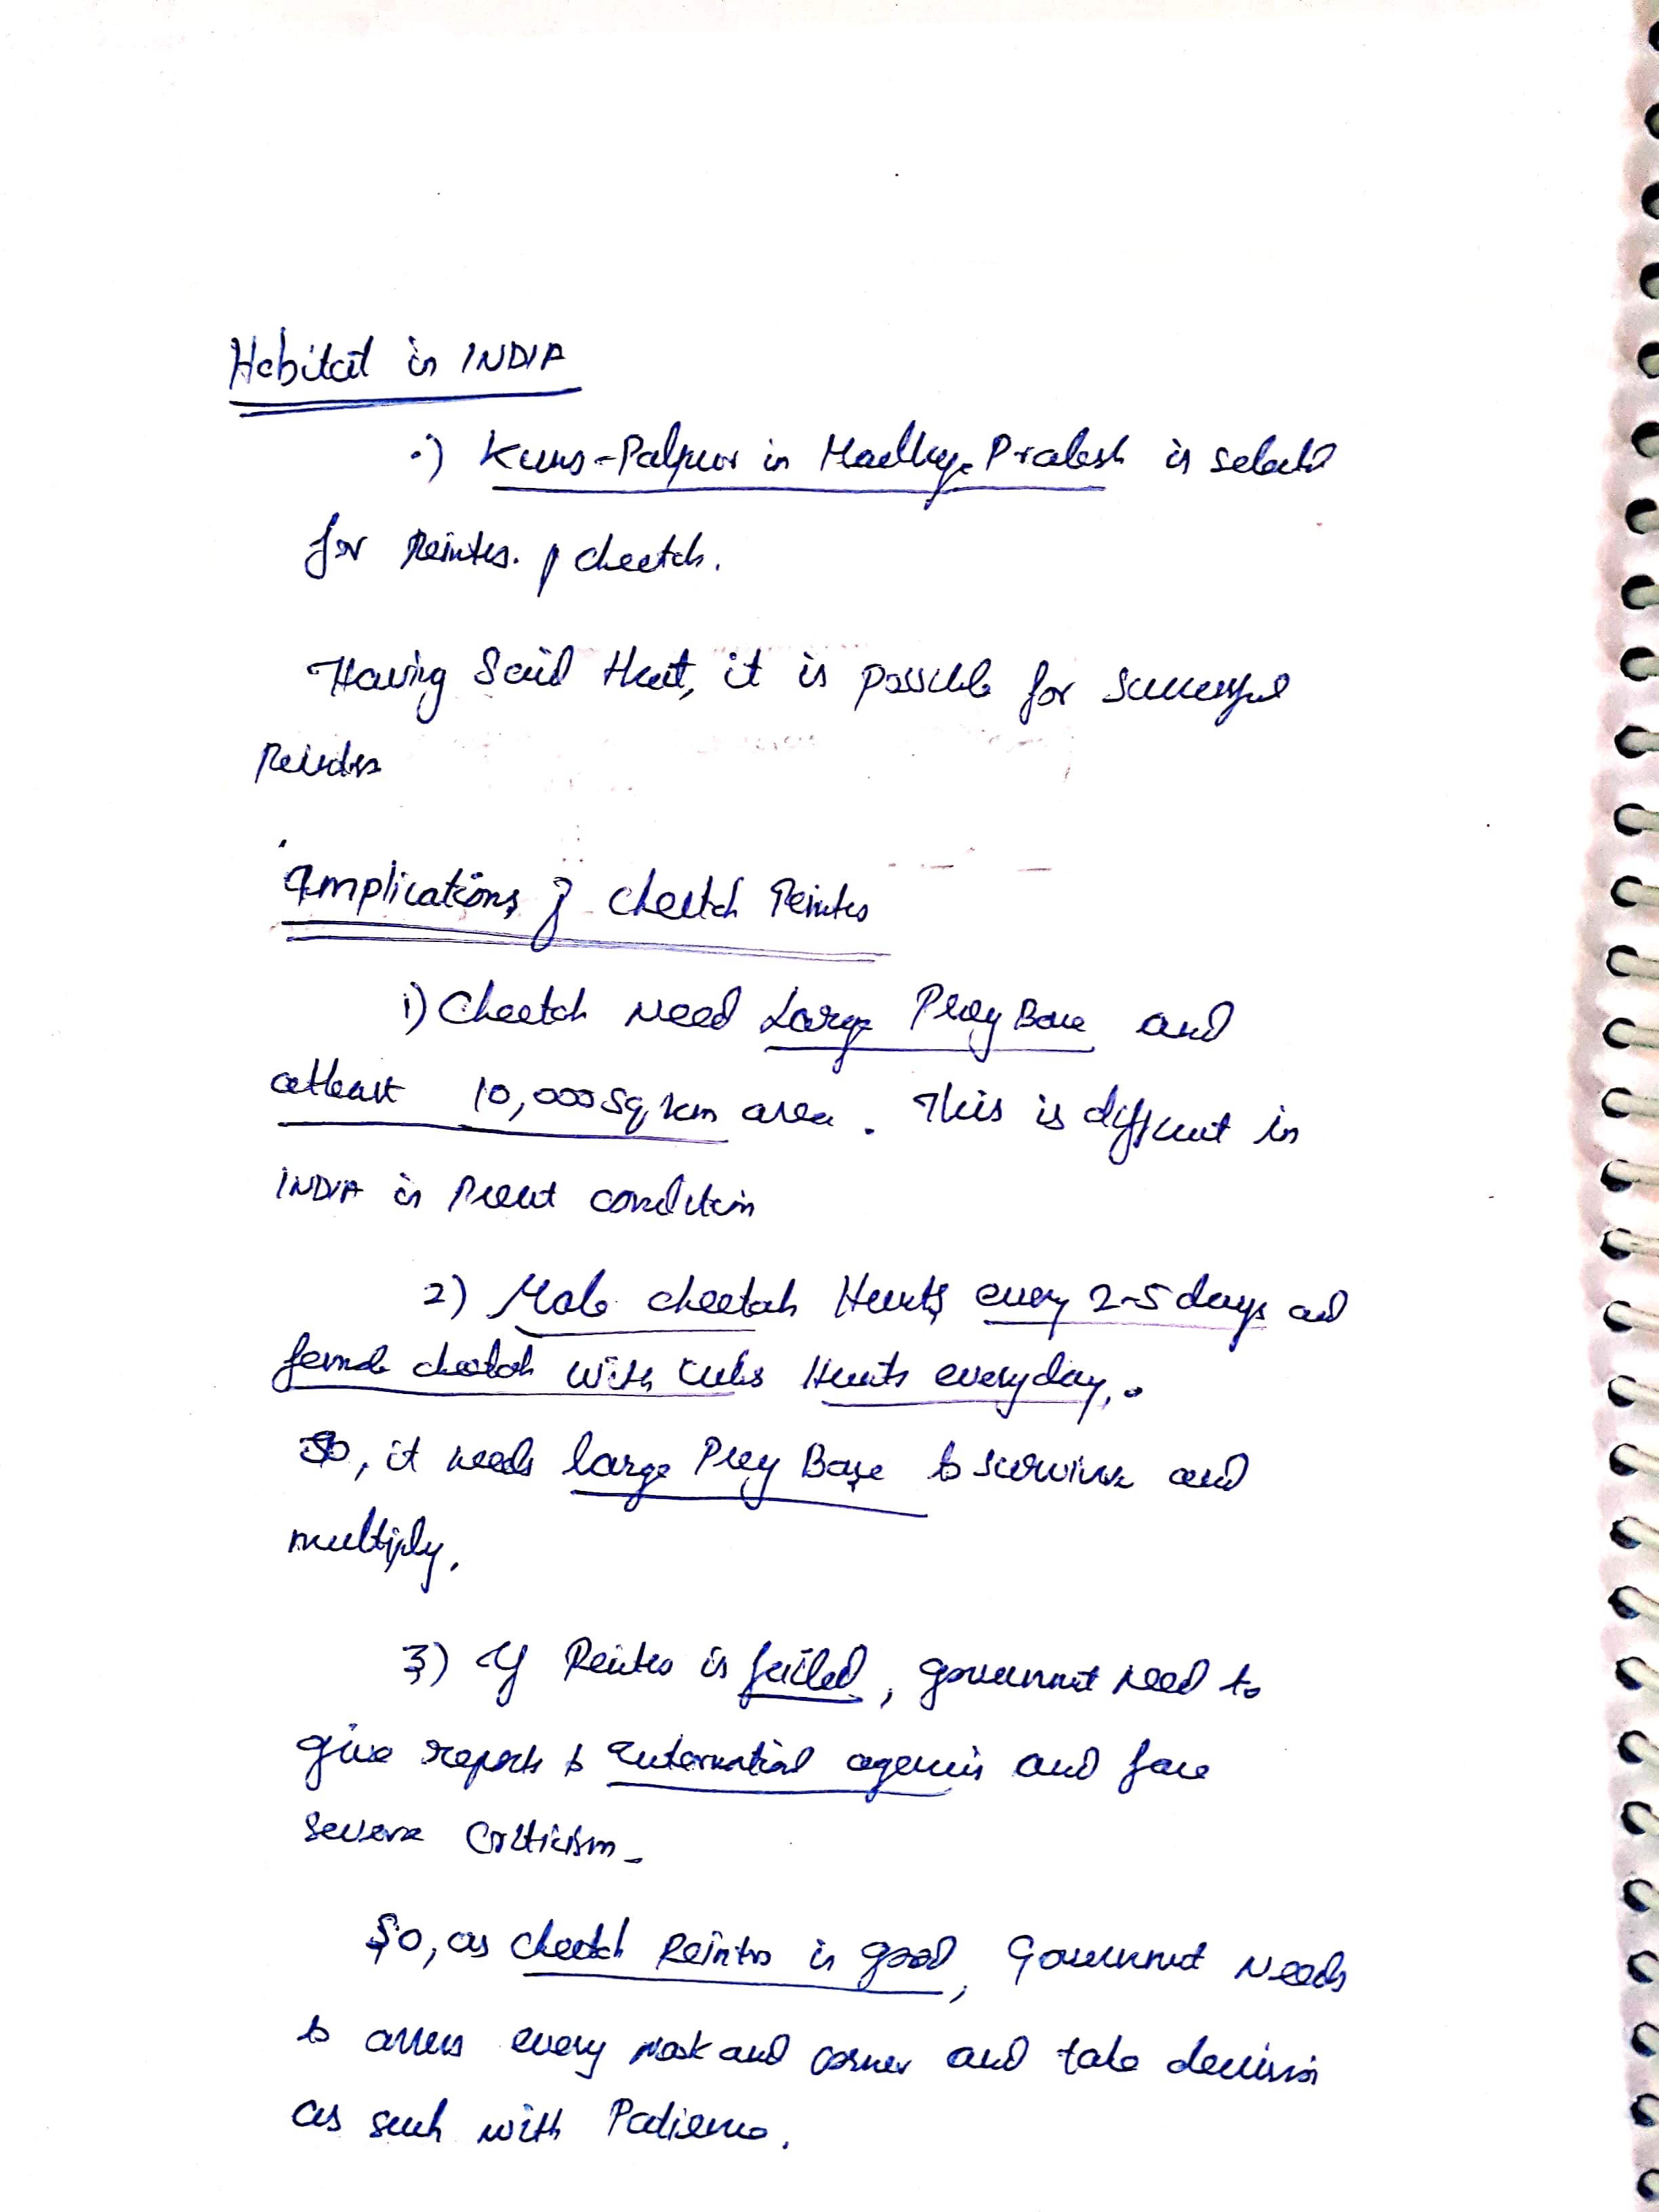 Habitat in INDIA
·) Kuno-Palpur in Madhya Pradesh is selectd
for Reintro. of cheetah.
Having Said that, it is possible for successful
Reintro
Implications of cheetah Reintro
1) Cheetah Need Large Prey Base and
atleast 10,000 sq km area. This is different in
INDIA in Present condition
2) Male cheetah Hunts every 2-5 days and
female cheetah with cubs Hunts everyday.
So, it needs large Prey Base to survive and
multiply.
3) If Reintro is failed, government need to
give reports to International agencies and face
severe Criticism.
So, as cheetah Reintro is good, Government Needs
to assess every nook and corner and take decision
as such with Patience.